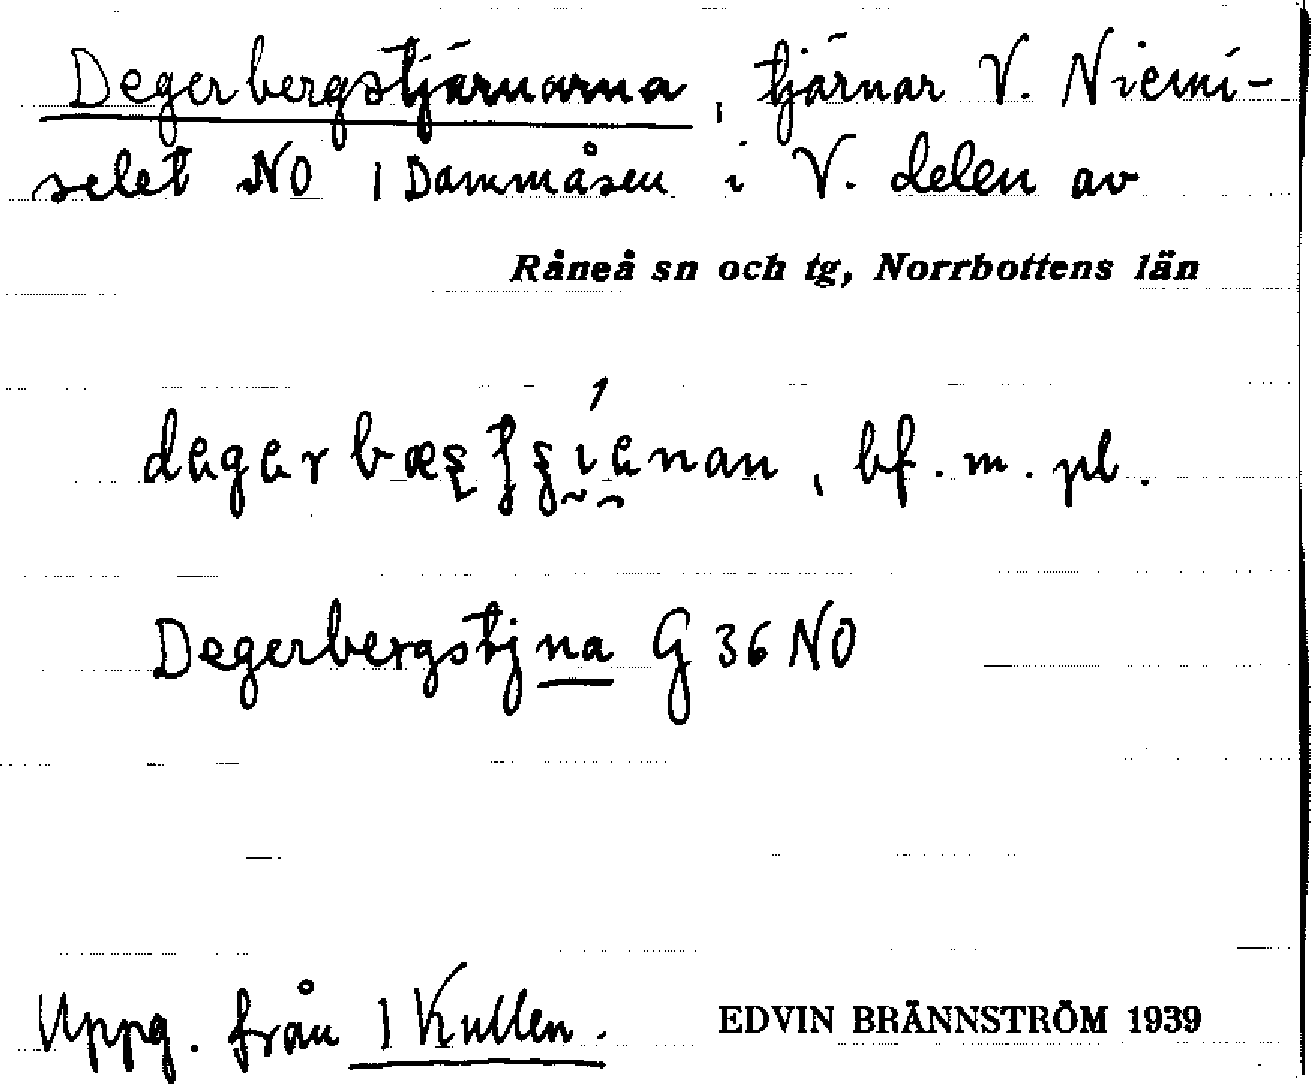 Degerbergstjärnarna, tjärnar V. Niemi-
selet NO 1 Dammåsen i V. delen av
Råneå sn och tg, Norrbottens län
bf. m. pl.
Degerbergstjna G 36 NO
Uppg. från 1 Kullen.
EDVIN BRÄNNSTRÖM 1939